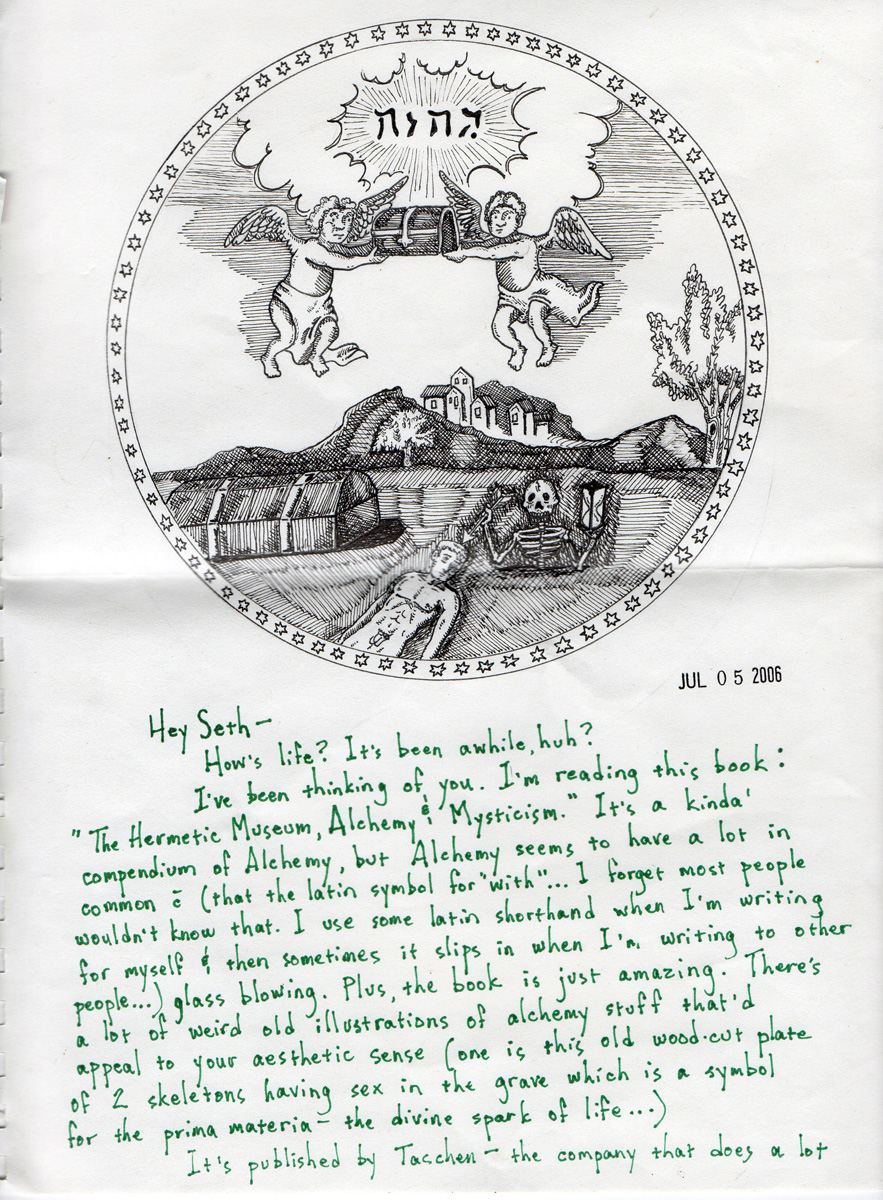 יהוה
JUL 05 2006
Hey Seth–
How's life? It's been awhile, huh?
I've been thinking of you. I'm reading this book:
"The Hermetic Museum, Alchemy & Mysticism." It's a kinda'
compendium of Alchemy, but Alchemy seems to have a lot in
common c̄ (that the latin symbol for "with"... I forget most people
wouldn't know that. I use some latin shorthand when I'm writing
for myself & then sometimes it slips in when I'm writing to other
people...) glass blowing. Plus, the book is just amazing. There's
a lot of weird old illustrations of alchemy stuff that'd
appeal to your aesthetic sense (one is this old wood-cut plate
of 2 skeletons having sex in the grave which is a symbol
for the prima materia – the divine spark of life...)
It's published by Taschen – the company that does a lot